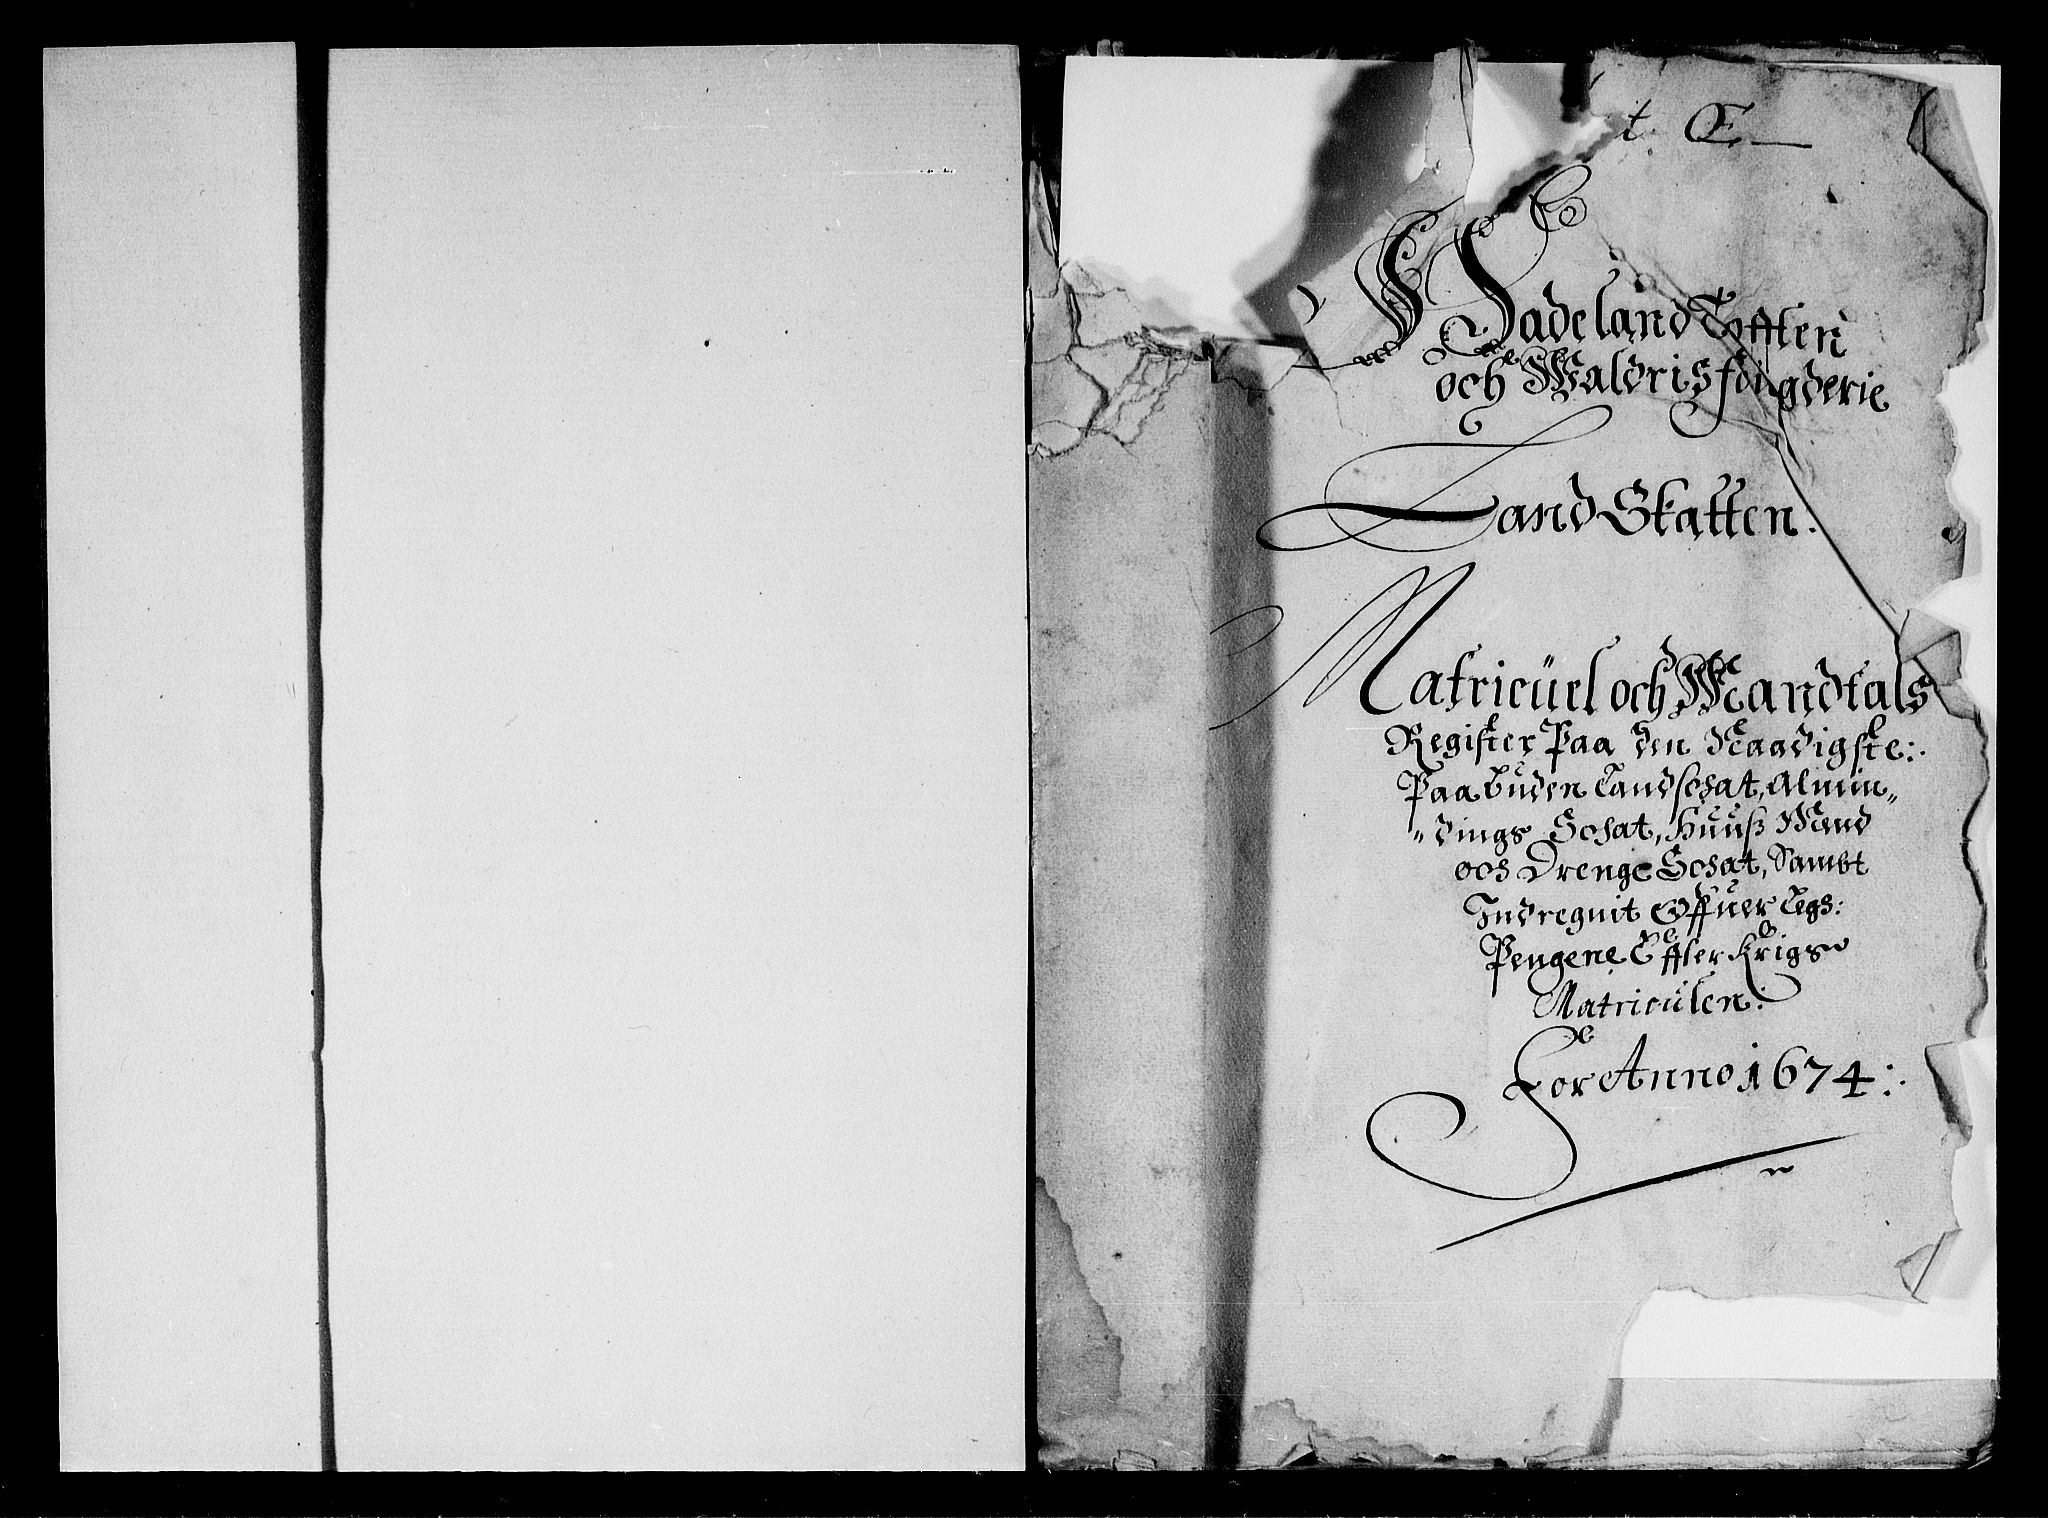 t Œ
Hadeland Tofften
och Waldris fougderie
Land Skatten.
Matricüel och Mandtals
Register Paa den Naadigste:
Paabuden Landschat, Almin„
„dings Schat, Huuß Mænd
och Drenge Schat, Sambt
Indregnit Offuer Legs:
Pengene Effter Krigs
Matricülen:
For Anno 1674: